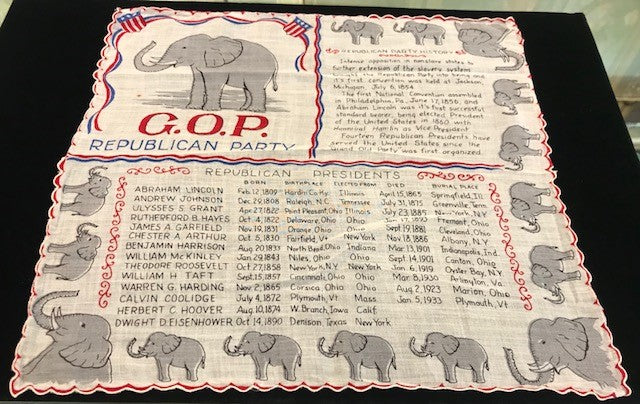 G.O.P.
REPUBLICAN PARTY
REPUBLICAN PARTY HISTORY
Intense opposition in nonslave states to
further extension of the slavery system
brought the Republican Party into being and
it's first convention was held at Jackson,
Michigan, July 6, 1854.
The first National Convention assembled
in Philadelphia, Pa., June 17, 1856, and
Abraham Lincoln was it's first successful
standard bearer, being elected President
of the United States in 1860 with
Hannibal Hamlin as Vice President
Fourteen Republican Presidents have
served the United States since the
Grand Old Party was first organized.
REPUBLICAN PRESIDENTS
BORN BIRTHPLACE ELECTED FROM DIED BURIAL PLACE
ABRAHAM LINCOLN Feb. 12, 1809 Hardin Co. Ky. Illinois April 15, 1865 Springfield, Ill.
ANDREW JOHNSON Dec. 29, 1808 Raleigh, N.C. Tennessee July 31, 1875 Greenville, Tenn.
ULYSSES S. GRANT Apr. 27, 1822 Point Pleasant, Ohio Illinois July 23, 1885 New York, N.Y.
RUTHERFORD B. HAYES Oct. 4, 1822 Delaware, Ohio Ohio Jan. 17, 1893 Fremont, Ohio
JAMES A. GARFIELD Nov. 19, 1831 Orange, Ohio Ohio Sept. 19, 1881 Cleveland, Ohio
CHESTER A. ARTHUR Oct. 5, 1830 Fairfield, Vt. New York Nov. 18, 1886 Albany, N.Y.
BENJAMIN HARRISON Aug. 20, 1833 North Bend, Ohio Indiana Mar. 13, 1901 Indianapolis, Ind.
WILLIAM McKINLEY Jan. 29, 1843 Niles, Ohio Ohio Sept. 14, 1901 Canton, Ohio
THEODORE ROOSEVELT Oct. 27, 1858 New York, N.Y. New York Jan. 6, 1919 Oyster Bay, N.Y.
WILLIAM H. TAFT Sept. 15, 1857 Cincinnati, Ohio Ohio Mar. 8, 1930 Arlington, Va.
WARREN G. HARDING Nov. 2, 1865 Corsica, Ohio Ohio Aug. 2, 1923 Marion, Ohio
CALVIN COOLIDGE July 4, 1872 Plymouth, Vt. Mass. Jan. 5, 1933 Plymouth, Vt.
HERBERT C. HOOVER Aug. 10, 1874 W. Branch, Iowa Calif.
DWIGHT D. EISENHOWER Oct. 14, 1890 Denison, Texas New York